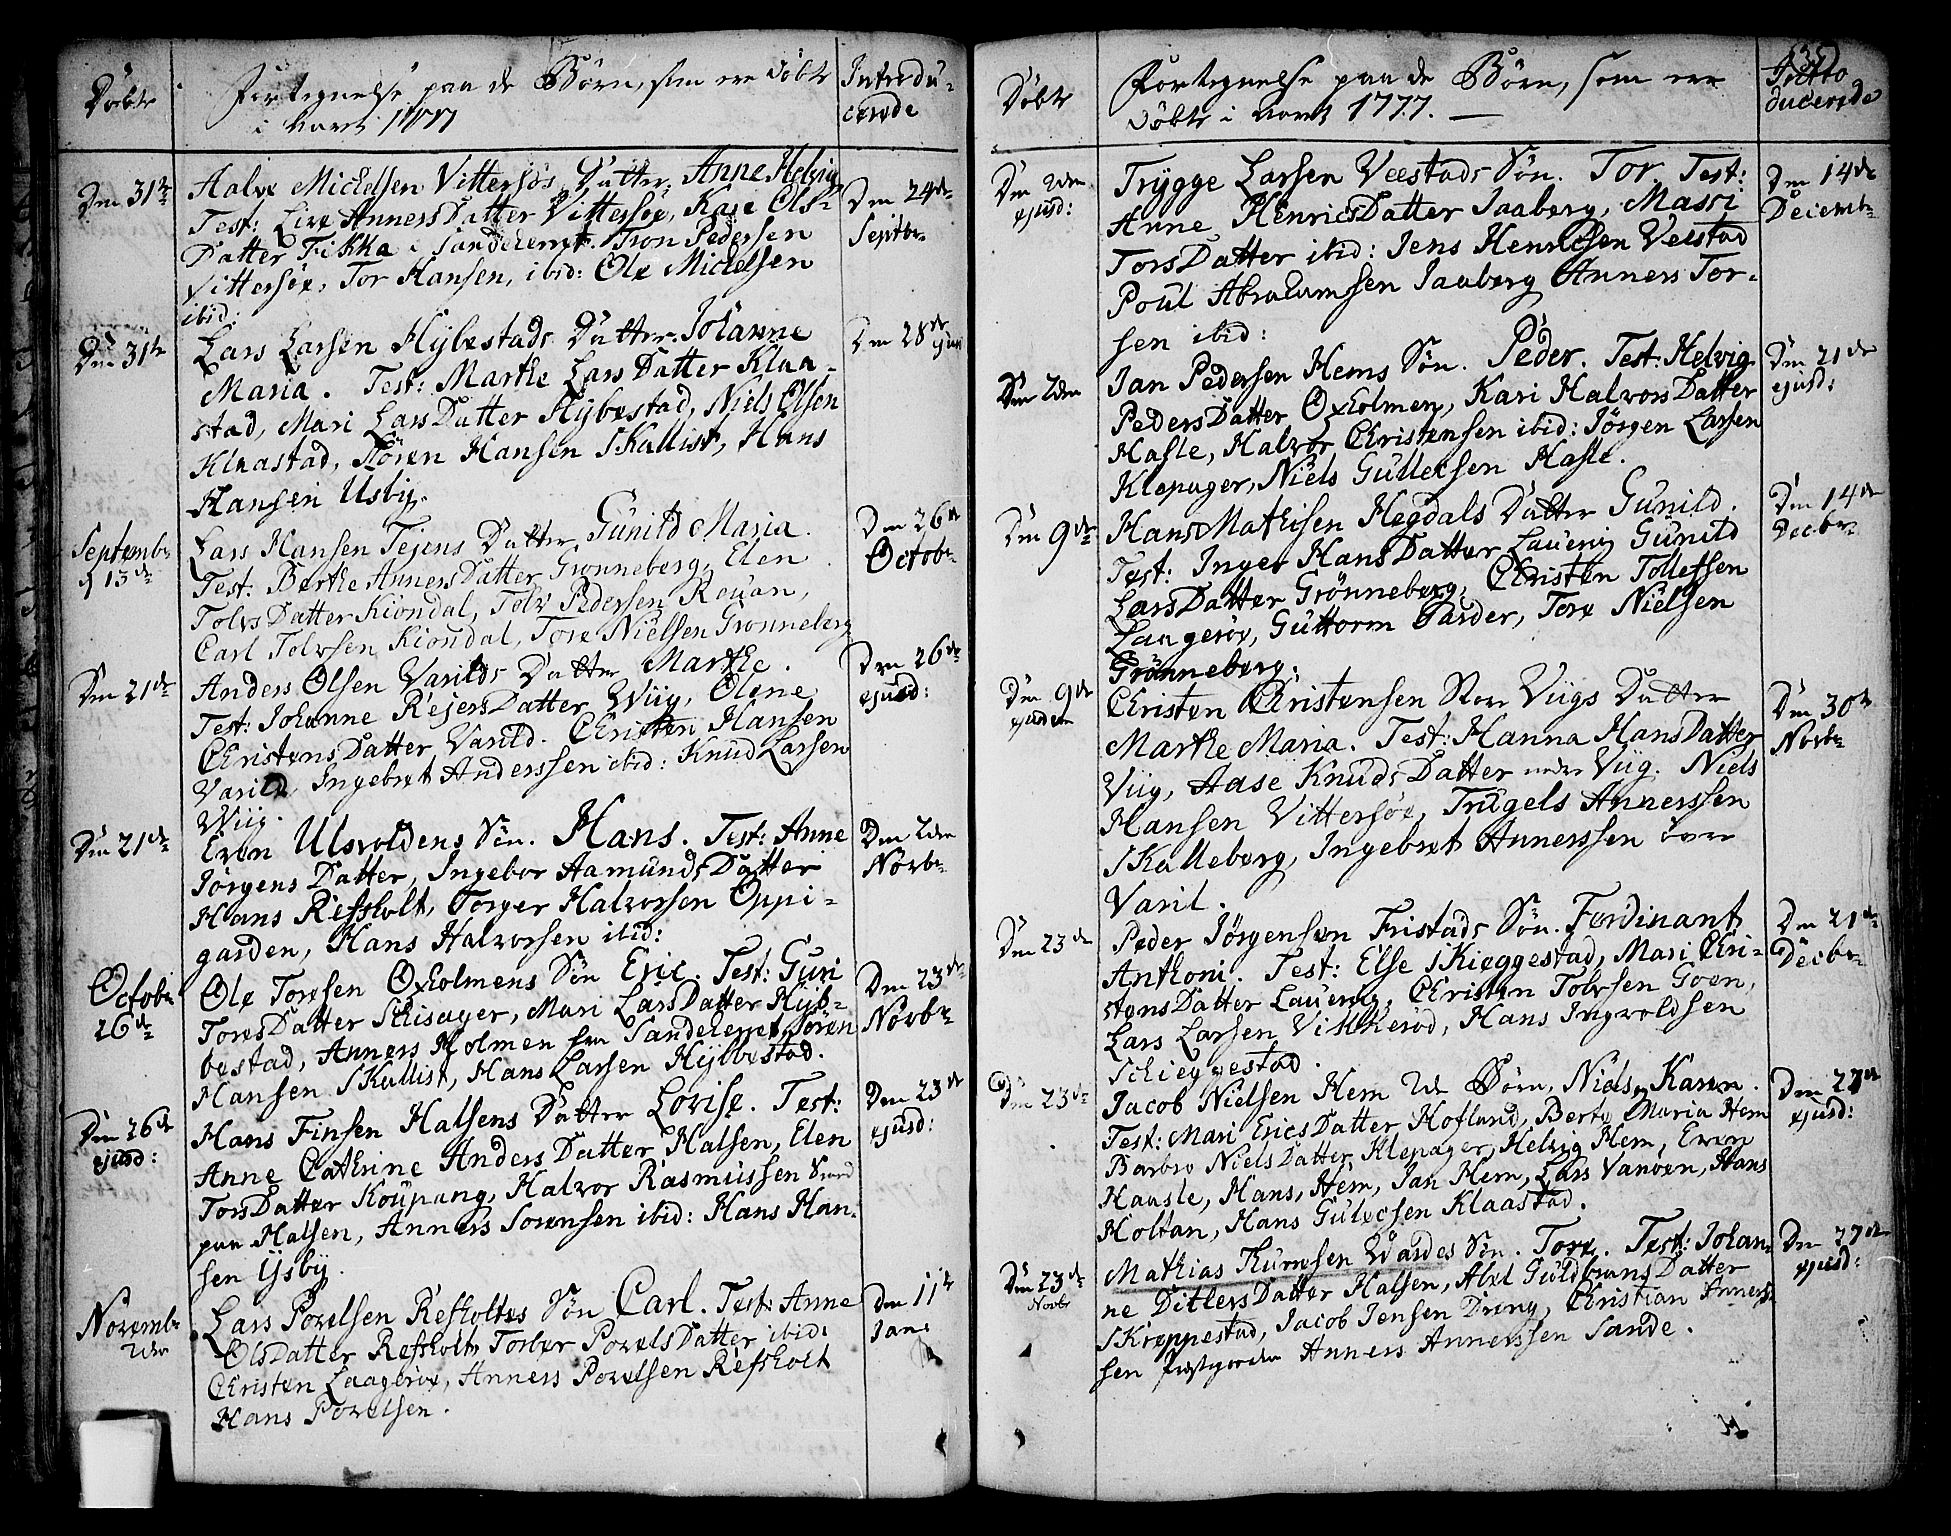 Döbte
Fortegnelse paa de Börn, som ere döbte
i Aaret 1777
Introdu-
cerede
Den 31te
Aalve Michelsen Vittersös Datter, Anne Helvig
Test: Live AnnersDatter Vittersöe, Kare Ols-
Datter Fikka i Sandeherret. Tron Pedersen
Vittersöe, Tor Hansen, ibid: Ole Michelsen
ibid:
Den 24de
Septbr
Den 31te
Lars Larsen Hybestads Datter Johanne
Maria. Test: Marthe LarsDatter Klaa-
stad, Mari LarsDatter Hybestad, Niels Olsen
Klaastad, Sören Hansen Skallist, Hans
Hansen Usby.
Den 28de ejusd
Septembr
d 13de
Lars Hansen Tejens Datter Gunild Maria.
Test: Berthe AnnersDatter Grönneberg, Elen
TolvsDatter Kiöndal, Tolv Pedersen Revan,
Carl Tolvsen Kiöndal, Tore Nielsen Grönneberg
Den 26de
Octobr
Den 21de
Anders Olsen Varilds Datter Marthe.
Test: Johanne RejersDatter Wiig, Olene
ChristensDatter Varild. Christen Hansen
Varild, Ingebret Anderssen ibid: Knud Larsen
Wiig.
Den 26de
ejusd:
Den 21de
Even Ulsvoldens Sön. Hans. Test: Anne
JörgensDatter, Ingebor AamundsDatter
Hans Refsholt, Torger Halvorsen Oppi-
garden, Hans Halvorsen ibid:
Den 2den
Novbr
Octobr
26de
Ole Toresen Oxholmens Sön Eric. Test: Guri
ToresDatter Schisager, Mari LarsDatter Hyb-
bestad, Anners Holmen fra Sandeherret, Sören
Hansen Skallist, Hans Larsen Hybbestad.
Den 23de
Novbr
Den 26de
ejusd:
Hans Finsen Halsens Datter Lovise. Test:
Anne Cathrine AndersDatter Halsen, Elen
TorsDatter Koupang, Halvor Rasmussen Svend
paa Halsen, Anners Sörensen ibid: Hans Han-
sen Ysby.
Den 23de
ejusd:
Novembr
2den
Lars Povelsen Refsholtes Sön Carl. Test: Anne
OlsDatter Refsholt, Torbor PovelsDatter ibid:
Christen Laageröe, Anners Povelsen Refsholt
Hans Povelsen.
Den 11te
Jan:
Döbte
Fortegnelse paa de Börn, som ere
döbte i Aaret 1777.
35
Intro
ducerede
Den 2den
ejusd:
Trygge Larsen Veestads Sön. Tor. Test:
Anne HenricsDatter Jaaberg, Massi
TorsDatter ibid: Jens Henricsen Veestad
Poul Abrahamssen Jaaberg Anners Tor-
sen ibid:
Den 14de
Decembr
Den 2den
Jan Pedersen Hems Sön. Peder. Test: Helvig
PedersDatter Oxholmen, Kari HalvorsDatter
Hasle, Halvor Christensen ibid: Jörgen Larsen
Klepager, Niels Gullecsen Hasle.
Den 21de
ejusd:
Den 9de
Hans Mathisen Hegdals Datter Gunild.
Test: Inger HansDatter Lauenig Gunild
LarsDatter Grönneberg, Christen Tollefsen
Laageröe, Guttorm Parder, Tore Nielsen
Grönneberg.
Den 14de
Decbr
Den 9de
ejusdem
Christen Christensen Stor Viigs Datter
Marthe Maria. Test: Hanna HansDatter
Viig, Aase KnudsDatter nedre Viig. Niels
Hansen Vittersöe, Trugels Annerssen
Skalleberg, Ingebret Annerssen övre
Varil.
Den 30te
Novbr
Den 23de
Peder Jörgensen Fristads Sön. Ferdinant
Anthoni. Test: Else Skieggestad, Mari Chri-
stensDatter Lauenig, Christen Tolvsen Goen,
Lars Larsen Vikkeröd, Hans Ingvoldsen
Schieggestad.
Den 21de
Decbr
Den 23de
Jacob Nielsen Hem 2de Börn, Niels, Karen.
Test: Mari EricsDatter Hofland, Berte Maria Hem
Barbro NielsDatter Klepager, Helvig Hem, Even
Haasle, Hans Hem, Jan Hem, Lars Vanven, Hans
Holtan, Hans Gulecsen Klaastad.
Den 27de
ejusd:
Den 23de
Novbr
Mathias Thuresen Wardes Sön. Tore. Test: Johan-
ne DitlevsDatter Halsen, Abel GuldbransDatter
Skreppestad, Jacob Jensen Dreng, Christian Anners-
sen Præstgorden Anners Annerssen Sande.
Den 27de
ejusd: